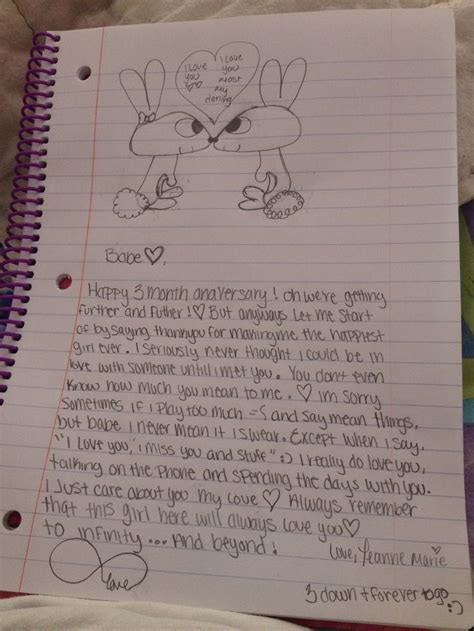 I love you
I love you most my darling
Babe♡,
Happy 3 month anaversary! oh we're getting
further and futher!♡ But anyways Let me start
of by saying thankyou for making me the happiest
girl ever. I seriously never thought I could be in
love with someone until i met you. You don't even
know how much you mean to me. ♡ im sorry
sometimes if i play too much =S and say mean things,
but babe i never mean it i swear. Except when I say,
"I Love you, i miss you and stuff" :) I really do love you,
talking on the phone and spending the days with you.
I Just care about you my love ♡ Always remember
that this girl here will always love you♡
to infinity... And beyond!
Love, Yeanne Marie
love
3 down + forever to go :)